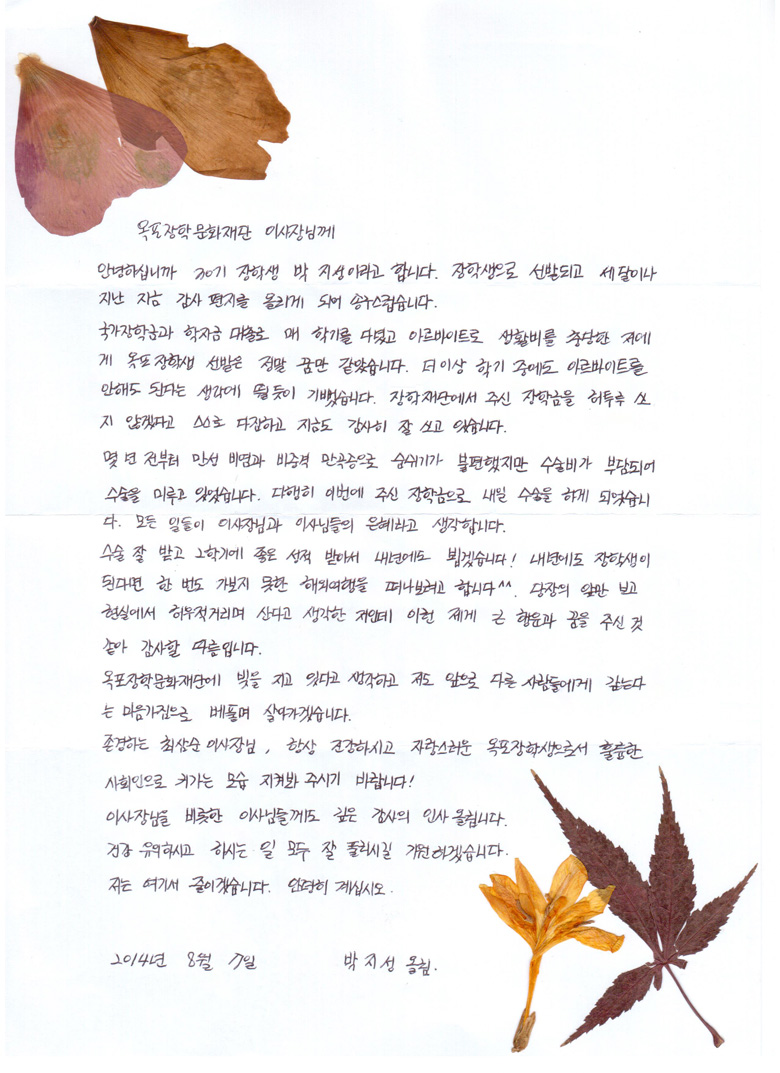 옥포장학문화재단 이사장님께
안녕하십니까 20기 장학생 박 지성이라고 합니다. 장학생으로 선발되고 세달이나
지난 지금 감사 편지를 올리게 되어 송구스럽습니다.
국가장학금과 학자금 대출로 매 학기를 다녔고 아르바이트로 생활비를 충당한 저에
게 옥포 장학생 선발은 정말 꿈만 같았습니다. 더이상 학기 중에도 아르바이트를
안해도 된다는 생각에 뛸듯이 기뻤습니다. 장학재단에서 주신 장학금을 허투루 쓰
지 않겠다고 스스로 다짐하고 지금도 감사히 잘 쓰고 있습니다.
몇 년 전부터 만성 비염과 비중격 만곡증으로 숨쉬기가 불편했지만 수술비가 부담되어
수술을 미루고 있었습니다. 다행히 이번에 주신 장학금으로 내일 수술을 하게 되었습니
다. 모든 일들이 이사장님과 이사님들의 은혜라고 생각합니다.
수술 잘 받고 2학기에 좋은 성적 받아서 내년에도 뵙겠습니다! 내년에도 장학생이
된다면 한 번도 가보지 못한 해외여행을 떠나보려고 합니다^^. 당장의 앞만 보고
현실에서 허우적거리며 산다고 생각한 저인데 이런 제게 큰 행운과 꿈을 주신 것
같아 감사할 따름입니다.
옥포장학문화재단에 빚을 지고 있다고 생각하고 저도 앞으로 다른 사람들에게 갚는다
는 마음가짐으로 베풀며 살아가겠습니다.
존경하는 최상순 이사장님, 항상 건강하시고 자랑스러운 옥포장학생으로서 훌륭한
사회인으로 커가는 모습 지켜봐 주시기 바랍니다!
이사장님을 비롯한 이사님들께도 깊은 감사의 인사 올립니다.
건강 유의하시고 하시는 일 모두 잘 풀리시길 기원하겠습니다.
저는 여기서 줄이겠습니다. 안녕히 계십시오.
2014년 8월 17일 박지성 올림.